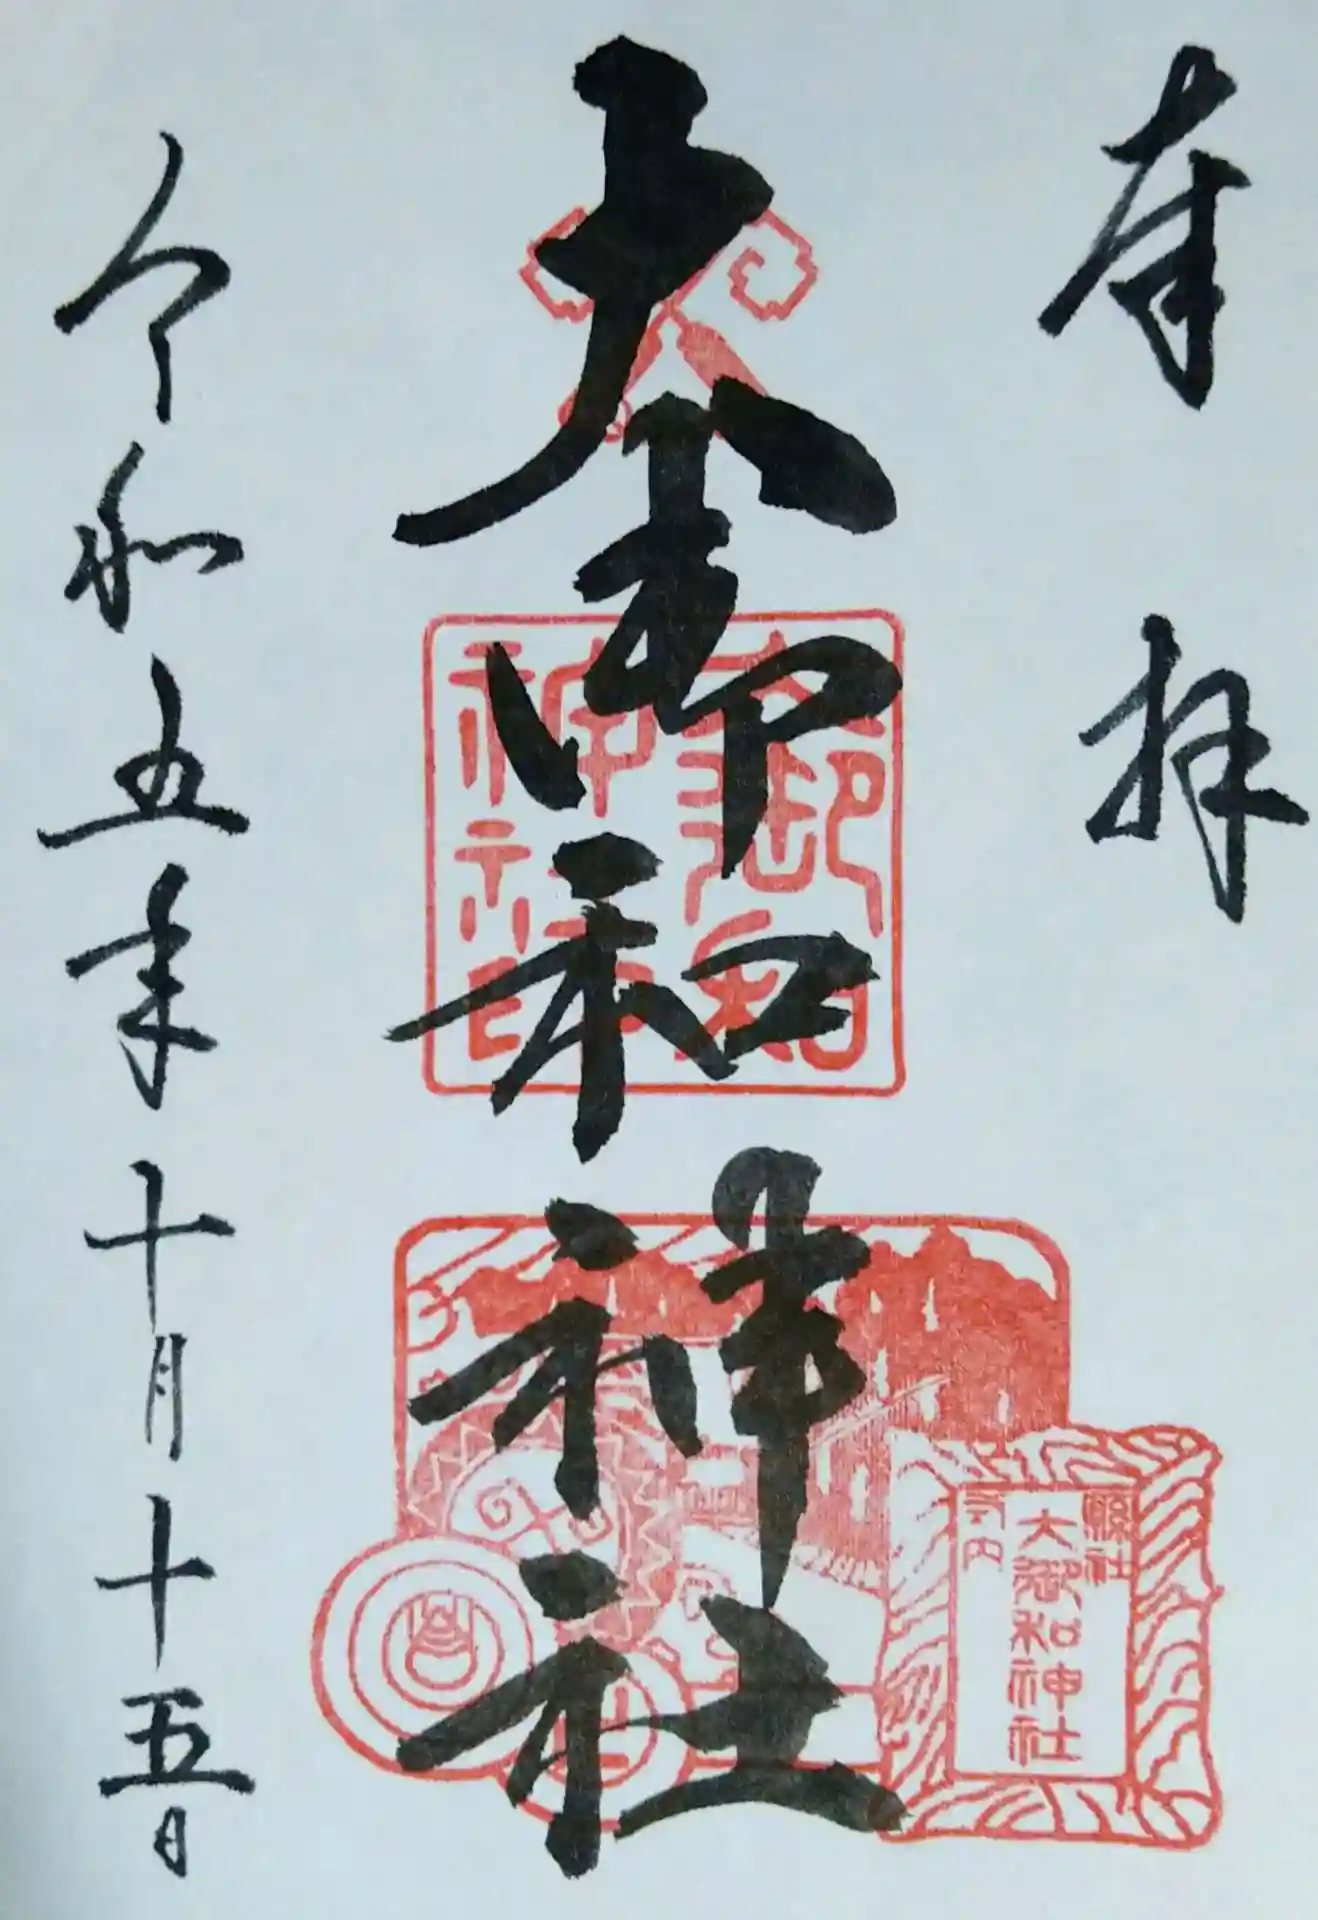 奉拝
大御和神社
大御和神社印
縣社
大御和神社
寺内
令和五年十月十五日